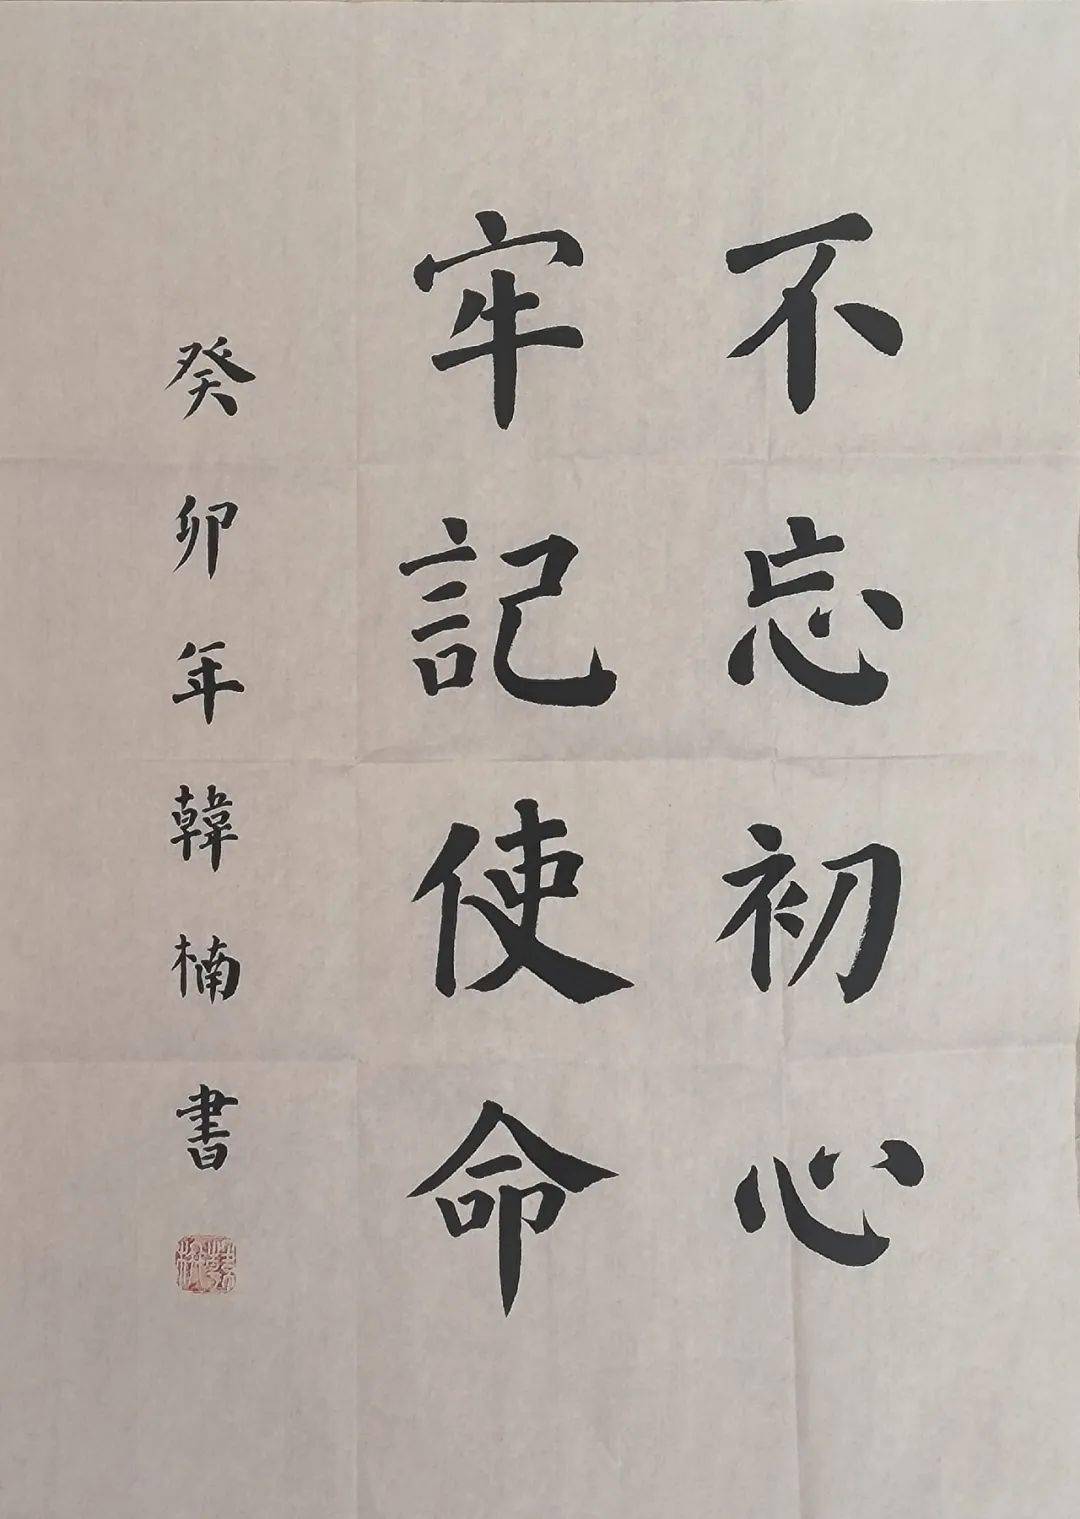 不忘初心
牢記使命
癸卯年韓楠書